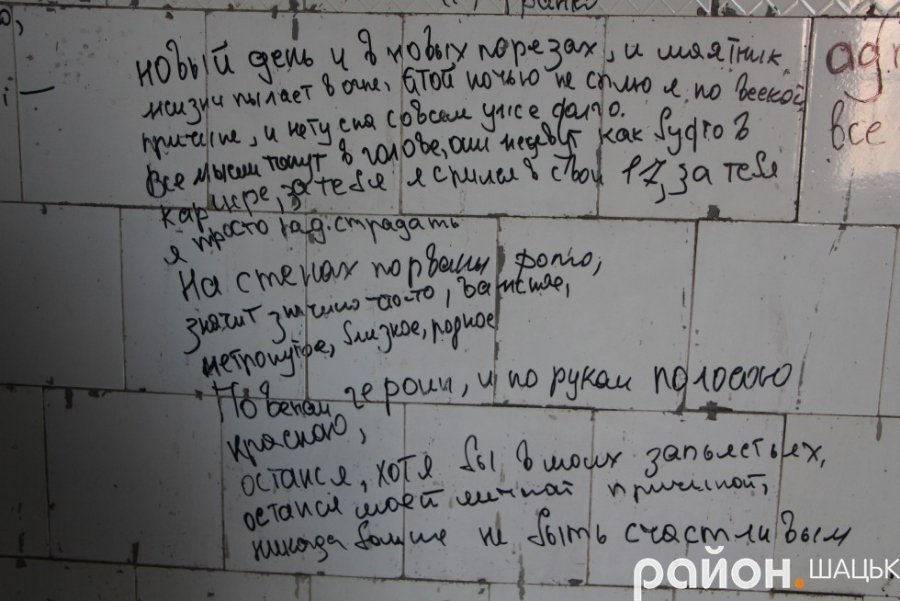 Франко
о,
новый день и в новых порезах, и маятник
жизни пылает в огне, этой ночью не сплю я по веской
причине, и нету сна совсем уже долго.
Все мысли тонут в голове, они как будто в
карцере, за тебя я спился в свои 17, за тебя
я просто рад. страдать
На стенах порваны фото,
значит значило что-то, важное,
нетронутое, близкое, родное
По венам героин, и по рукам полосою
красною,
остался, хотя бы в моих запьястьях,
остался моей личной причиной,
никогда больше не быть счастливым
все
район.шацьк